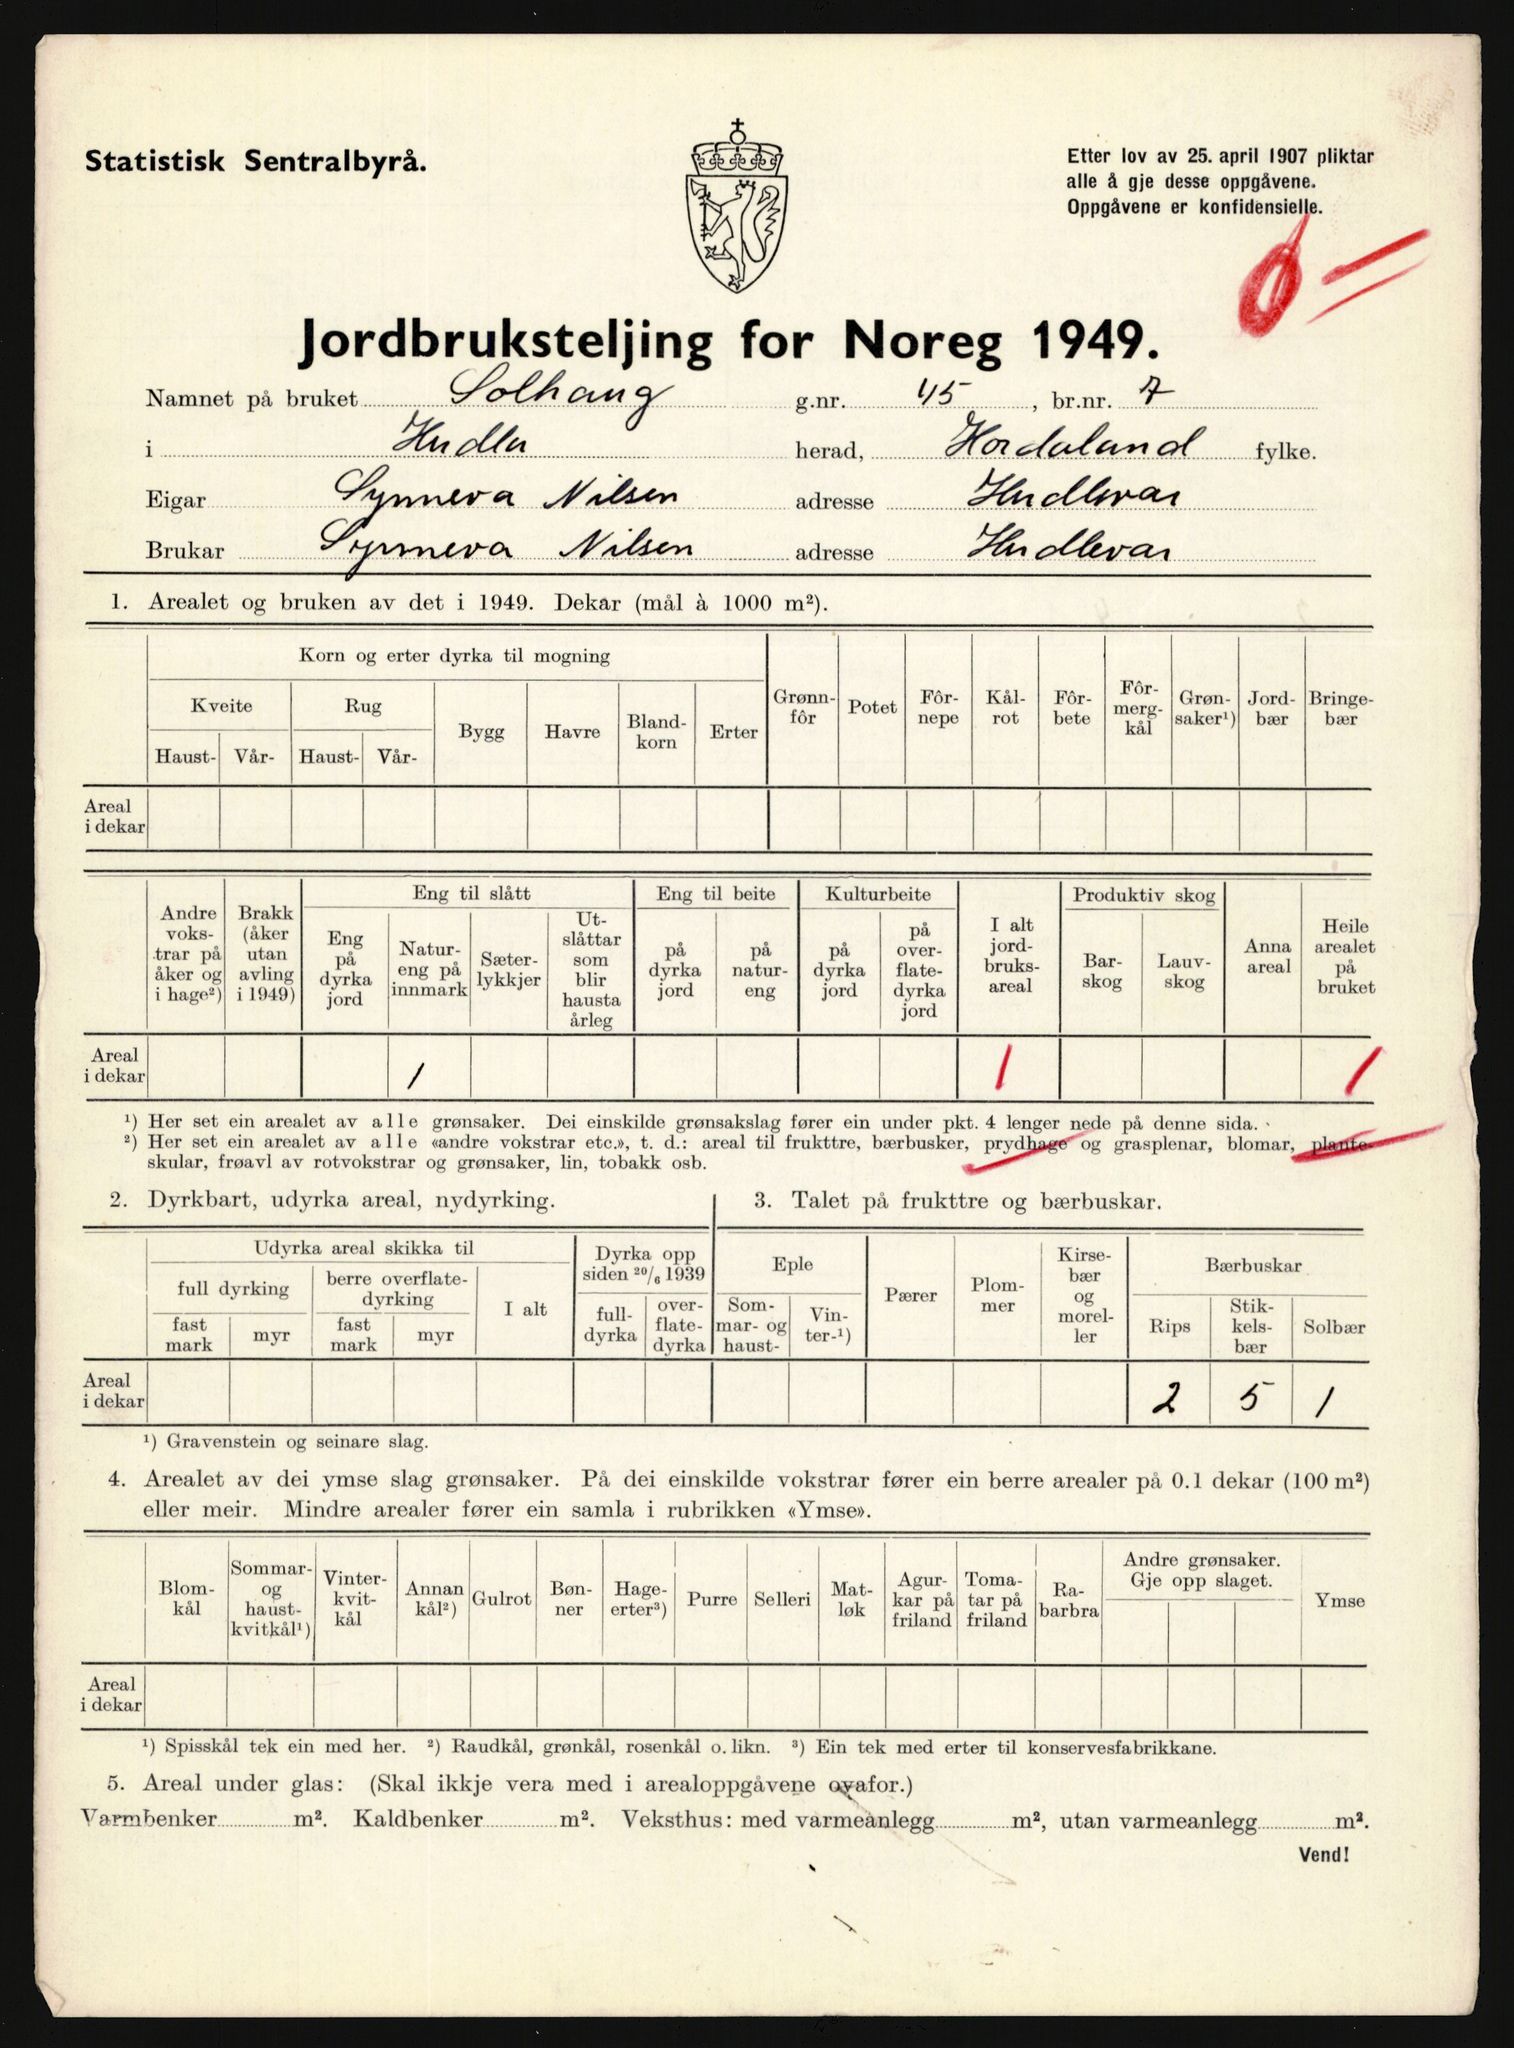 Statistisk Sentralbyrå.
Etter lov av 25. april 1907 pliktar
alle å gje desse oppgåvene.
Oppgåvene er konfidensielle.
Jordbruksteljing for Noreg 1949.
Namnet på bruket Solhaug g.nr. 45, br.nr. 7
i Hudla herad, Hordaland fylke.
Eigar Synneva Nilsen adresse Hudlevar
Brukar Synneva Nilsen adresse Hudlevar
1. Arealet og bruken av det i 1949. Dekar (mål à 1000 m²).
Korn og erter dyrka til mogning
Kveite Rug Bygg Havre Bland-korn Erter
Haust- Vår- Haust- Vår-
Grønn-fôr Potet Fôr-nepe Kål-rot Fôr-bete Fôr-merg-kål Grøn-saker¹) Jord-bær Bringe-bær
Areal
i dekar
Andre voks-trar på åker og i hage²) Brakk (åker utan avling i 1949)
Eng til slått
Eng på dyrka jord Natur-eng på innmark Sæter-lykkjer Ut-slåttar som blir hausta årleg
Eng til beite
på dyrka jord på natur-eng
Kulturbeite
på dyrka jord på over-flate-dyrka jord
I alt jord-bruks-areal
Produktiv skog
Bar-skog Lauv-skog
Anna areal Heile arealet på bruket
Areal
i dekar 1 1 1
¹) Her set ein arealet av alle grønsaker. Dei einskilde grønsakslag fører ein under pkt. 4 lenger nede på denne sida.
²) Her set ein arealet av alle «andre vokstrar etc.», t. d.: areal til frukttre, bærbusker, prydhage og grasplenar, blomar, plante-
skular, frøavl av rotvokstrar og grønsaker, lin, tobakk osb.
2. Dyrkbart, udyrka areal, nydyrking.
Udyrka areal skikka til
full dyrking berre overflate-dyrking I alt
fast mark myr fast mark myr
Dyrka opp siden 20/6 1939
full-dyrka over-flate-dyrka
3. Talet på frukttre og bærbuskar.
Eple Pærer Plom-mer Kirse-bær og morel-ler Bærbuskar
Som-mar- og haust- Vin-ter-¹) Rips Stik-kels-bær Solbær
Areal
i dekar 2 5 1
¹) Gravenstein og seinare slag.
4. Arealet av dei ymse slag grønsaker. På dei einskilde vokstrar fører ein berre arealer på 0.1 dekar (100 m²)
eller meir. Mindre arealer fører ein samla i rubrikken «Ymse».
Blom-kål Sommar- og haust-kvitkål¹) Vinter-kvit-kål Annan kål²) Gulrot Bøn-ner Hage-erter³) Purre Selleri Mat-løk Agur-kar på friland Toma-tar på friland Ra-barbra Andre grønsaker. Gje opp slaget. Ymse
Areal
i dekar
¹) Spisskål tek ein med her. ²) Raudkål, grønkål, rosenkål o. likn. ³) Ein tek med erter til konservesfabrikkane.
5. Areal under glas: (Skal ikkje vera med i arealoppgåvene ovafor.)
Varmbenker m². Kaldbenker m². Veksthus: med varmeanlegg m², utan varmeanlegg m².
Vend!